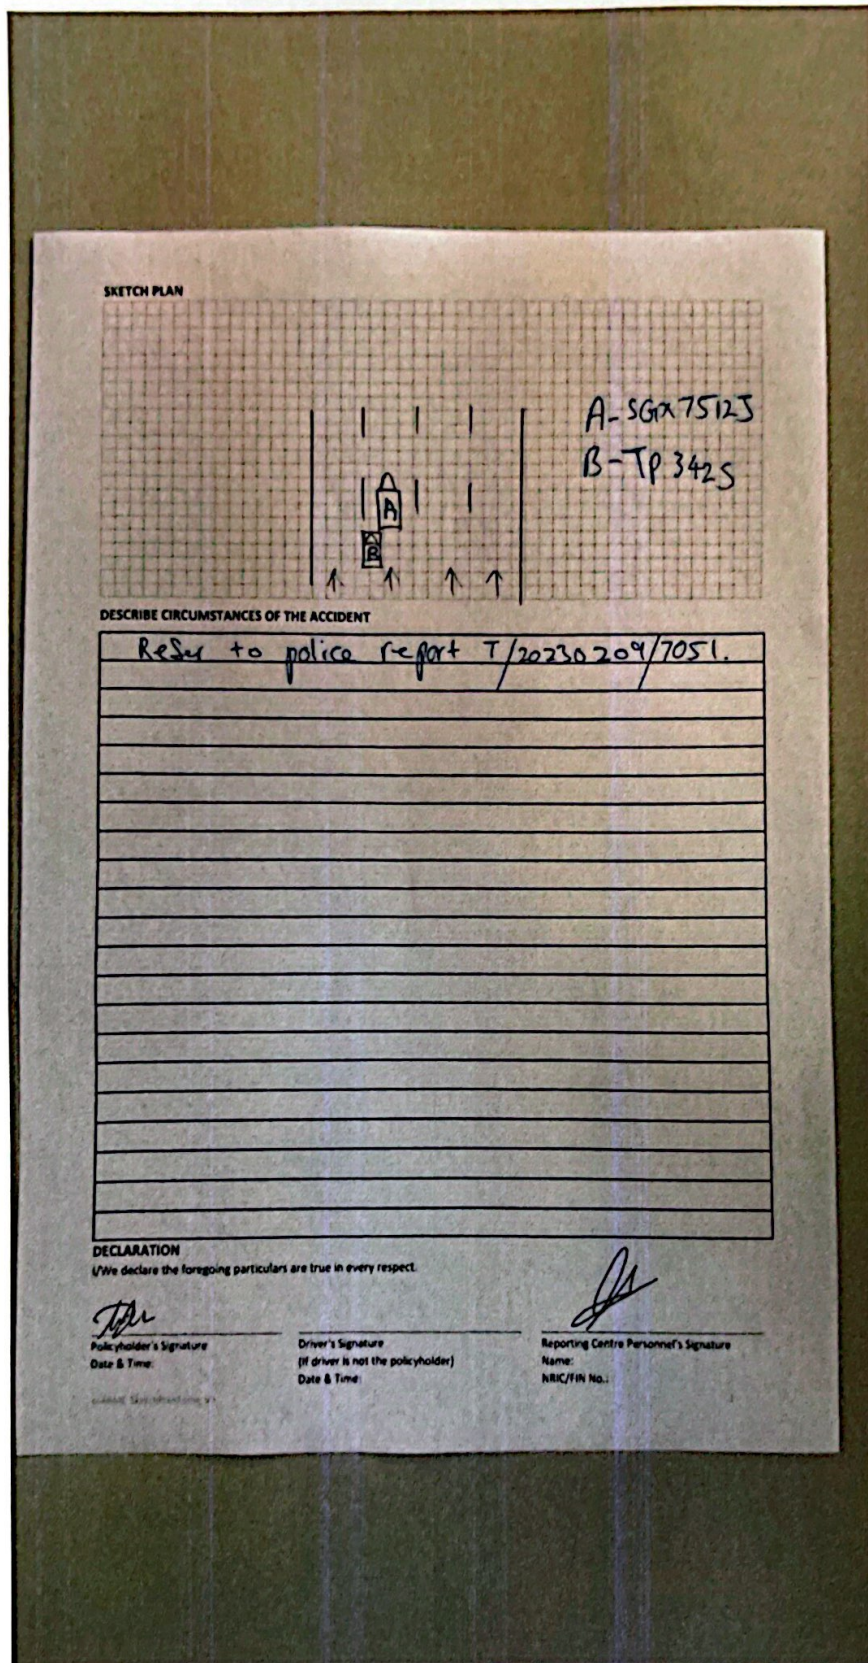 SKETCH PLAN
A- SGX7512J
B-TP 342S
A
B
DESCRIBE CIRCUMSTANCES OF THE ACCIDENT
Refer to police report T/20230209/7051.
DECLARATION
I/We declare the foregoing particulars are true in every respect.
Policyholder's Signature
Date & Time:
Driver's Signature
(If driver is not the policyholder)
Date & Time:
Reporting Centre Personnel's Signature
Name:
NRIC/FIN No.: